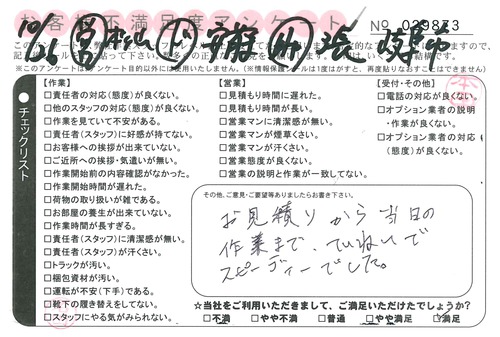 お客様不満足度アンケート
No 029873
※このアンケートはアンケート目的以外には使用いたしません。(※情報保護シールは1度がすと、再度貼りなおすことはできません)
チェックリスト
【作業】
□責任者の対応(態度)が良くない。
□他のスタッフの対応(態度)が良くない。
□作業を見ていて不安がある。
□責任者(スタッフ)に好感が持てない。
□お客様への挨拶が出来ていない。
□ご近所への挨拶・気遣いが無い。
□作業開始前の内容確認がなかった。
□作業開始時間が遅れた。
□荷物の取り扱いが雑である。
□お部屋の養生が出来ていない。
□作業時間が長すぎる。
□責任者(スタッフ)に清潔感が無い。
□責任者(スタッフ)が汗くさい。
□トラックが汚い。
□梱包資材が汚い。
□運転が不安(下手)である。
□靴下の履き替えをしてない。
□スタッフにやる気がみられない。
【営業】
□見積もり時間に遅れた。
□見積もり時間が長い。
□営業マンに清潔感が無い。
□営業マンが煙草くさい。
□営業マンが汗くさい。
□営業態度が良くない。
□営業の説明と作業が一致してない。
【受付・その他】
□電話の対応が良くない。
□オプション業者の説明
・作業が良くない。
□オプション業者の対応
(態度)が良くない。
その他、ご意見・ご要望等ありましたらお書き下さい。
お見積りから当日の
作業まで、ていねいで
スピーディーでした。
☆当社をご利用いただきまして、ご満足いただけたでしょうか?
□不満 □やや不満 □普通 □やや満足 □満足